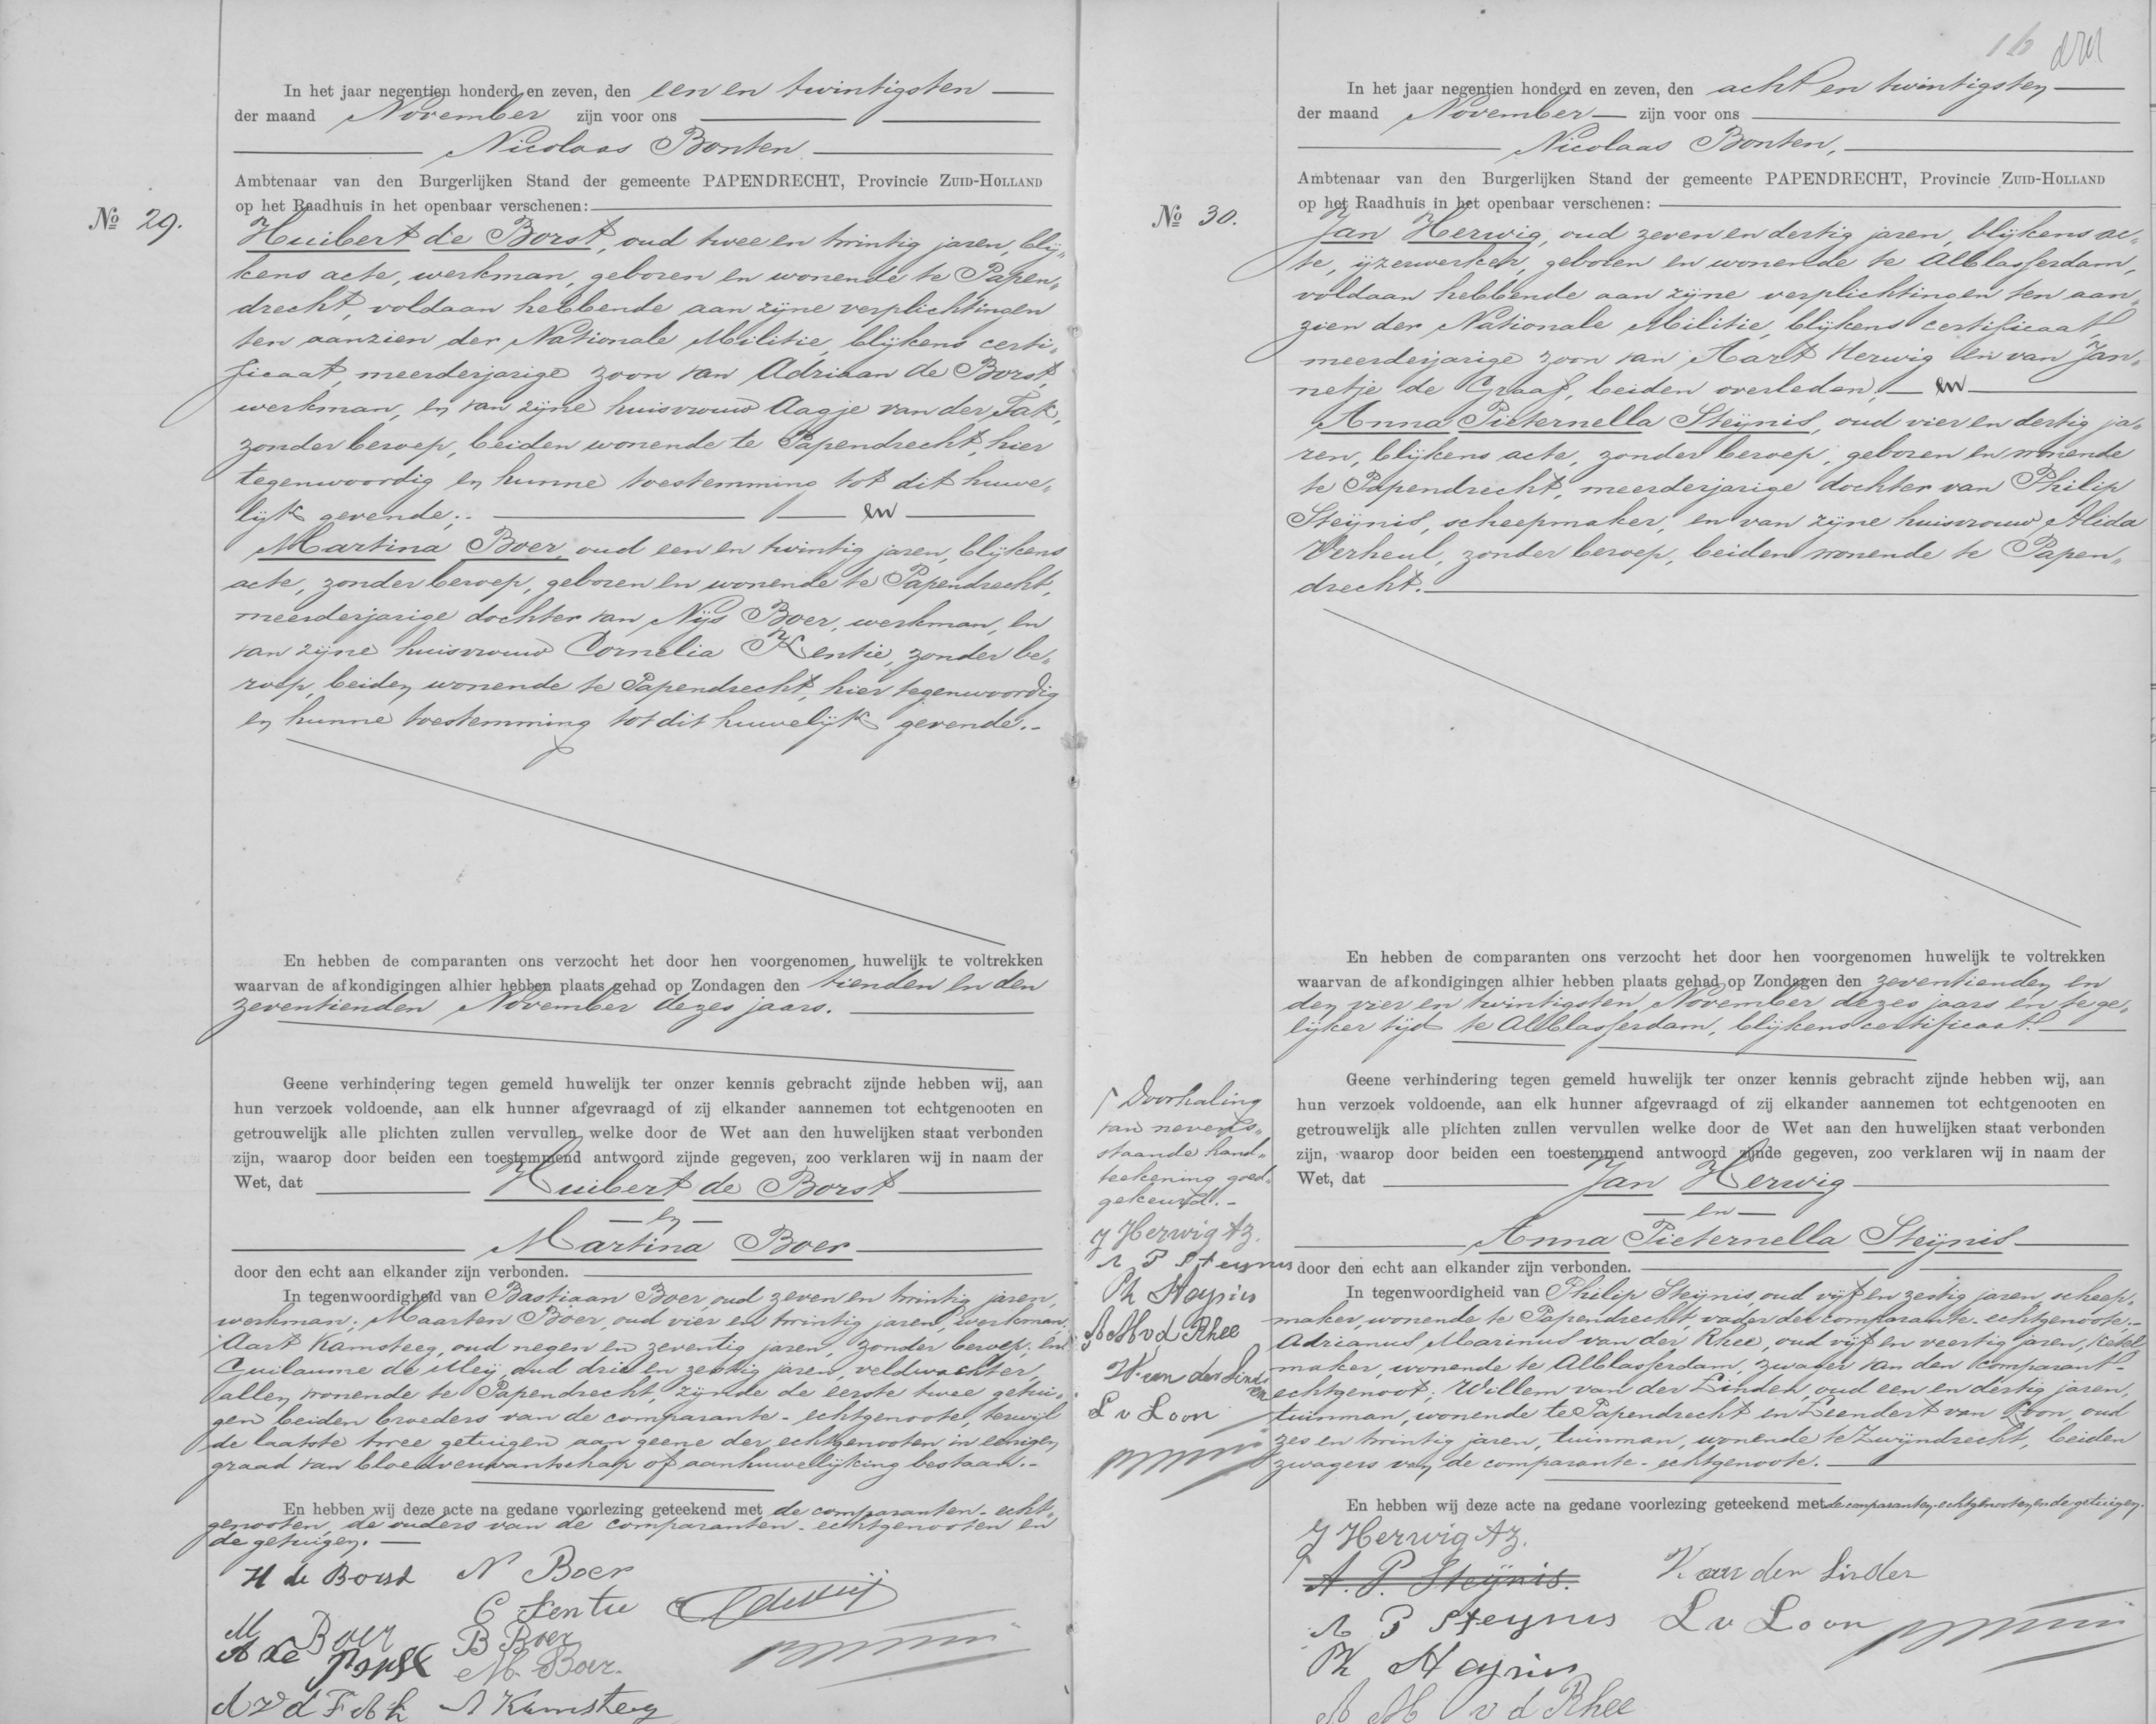 In het jaar negentien honderd en zeven, den een en twintigsten
der maand November zijn voor ons
Nicolaas Bonten
Ambtenaar van den Burgerlijken Stand der gemeente PAPENDRECHT, Provincie ZUID-HOLLAND
op het Raadhuis in het openbaar verschenen:
No 29.
Huibert de Borst, oud twee en twintig jaren, blij„
kens acte, werkman, geboren en wonende te Papen„
drecht, voldaan hebbende aan zijne verplichtingen
ten aanzien der Nationale Militie, blijkens certi„
ficaat, meerderjarige zoon van Adriaan de Borst,
werkman, en van zijne huisvrouw Aagje van der Tak,
zonder beroep, beiden wonende te Papendrecht, hier
tegenwoordig en hunne toestemming tot dit huwe„
lijk gevende; en
Martina Boer, oud een en twintig jaren, blijkens
acte, zonder beroep, geboren en wonende te Papendrecht,
meerderjarige dochter van Nijs Boer, werkman, en
van zijne huisvrouw Cornelia Kentie, zonder be„
roep, beiden wonende te Papendrecht, hier tegenwoordig
en hunne toestemming tot dit huwelijk gevende.-
En hebben de comparanten ons verzocht het door hen voorgenomen huwelijk te voltrekken
waarvan de afkondigingen alhier hebben plaats gehad op Zondagen den tienden en den
zeventienden November dezes jaars.
Geene verhindering tegen gemeld huwelijk ter onzer kennis gebracht zijnde hebben wij, aan
hun verzoek voldoende, aan elk hunner afgevraagd of zij elkander aannemen tot echtgenooten en
getrouwelijk alle plichten zullen vervullen welke door de Wet aan den huwelijken staat verbonden
zijn, waarop door beiden een toestemmend antwoord zijnde gegeven, zoo verklaren wij in naam der
Wet, dat Huibert de Borst
en
Martina Boer
door den echt aan elkander zijn verbonden.
In tegenwoordigheid van Bastiaan Boer, oud zeven en twintig jaren,
werkman; Maarten Boer, oud vier en twintig jaren, werkman;
Aart Kamsteeg, oud negen en zeventig jaren, zonder beroep; en
Guilaume de Meij, oud drie en zestig jaren, veldwachter,
allen wonende te Papendrecht, zijnde de eerste twee getui„
gen beiden broeders van de comparante-echtgenoote, terwijl
de laatste twee getuigen aan geene der echtgenooten in eenigen
graad van bloedverwantschap of aanhuwelijking bestaan.-
En hebben wij deze acte na gedane voorlezing geteekend met de comparanten-echt„
genooten, de ouders van de comparanten-echtgenooten en
de getuigen.
H de Borst N Boer
C Kentie
M Boer B Boer
A de Borst M. Boer.
A v d Tak A Kamsteeg
In het jaar negentien honderd en zeven, den acht en twintigsten
der maand November zijn voor ons
Nicolaas Bonten,
Ambtenaar van den Burgerlijken Stand der gemeente PAPENDRECHT, Provincie ZUID-HOLLAND
op het Raadhuis in het openbaar verschenen:
No 30.
Jan Herwig, oud zeven en dertig jaren, blijkens ac„
te, ijzerwerker, geboren en wonende te Alblasserdam,
voldaan hebbende aan zijne verplichtingen ten aan„
zien der Nationale Militie, blijkens certificaat,
meerderjarige zoon van Aart Herwig en van Jan„
netje de Graaf, beiden overleden, en
Anna Pieternella Steijnis, oud vier en dertig ja„
ren, blijkens acte, zonder beroep, geboren en wonende
te Papendrecht, meerderjarige dochter van Philip
Steijnis, scheepmaker, en van zijne huisvrouw Alida
Verheul, zonder beroep, beiden wonende te Papen„
drecht.
En hebben de comparanten ons verzocht het door hen voorgenomen huwelijk te voltrekken
waarvan de afkondigingen alhier hebben plaats gehad op Zondagen den zeventienden en
den vier en twintigsten November dezes jaars en tege„
lijker tijd te Alblasserdam, blijkens certificaat.
Geene verhindering tegen gemeld huwelijk ter onzer kennis gebracht zijnde hebben wij, aan
hun verzoek voldoende, aan elk hunner afgevraagd of zij elkander aannemen tot echtgenooten en
getrouwelijk alle plichten zullen vervullen welke door de Wet aan den huwelijken staat verbonden
zijn, waarop door beiden een toestemmend antwoord zijnde gegeven, zoo verklaren wij in naam der
Wet, dat Jan Herwig
en
Anna Pieternella Steijnis
door den echt aan elkander zijn verbonden.
In tegenwoordigheid van Philip Steijnis, oud vijf en zestig jaren, scheep„
maker, wonende te Papendrecht, vader der comparante-echtgenoote;
Adrianus Marinus van der Rhee, oud vijf en veertig jaren, ketel
maker, wonende te Alblasserdam, zwager van den comparant-
echtgenoot; Willem van der Linden, oud een en dertig jaren,
tuinman, wonende te Papendrecht en Leendert van Loon, oud
zes en twintig jaren, tuinman, wonende te Zwijndrecht, beiden
zwagers van de comparante-echtgenoote.
En hebben wij deze acte na gedane voorlezing geteekend met de comparanten-echtgenooten en de getuigen.
J Herwig Az.
A. P. Steijnis. W van der Linden
A P Steynis L v Loon
Ph Steynis
A M v d Rhee
Doorhaling
van nevens„
staande hand„
teekening goed„
gekeurd.-
J Herwig Az.
A P Steynis
Ph Steynis
A M v d Rhee
W van der Linden
L v Loon